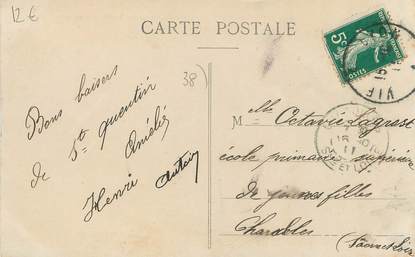 12 €
CARTE POSTALE
38)
5c
POSTES
VIF
Bons baisers
de St quentin
Henri Amélie
antoin
M lle Octavie Lagrost
école primaire supérieure
de jeunes filles
Charolles
(Saone et Loire